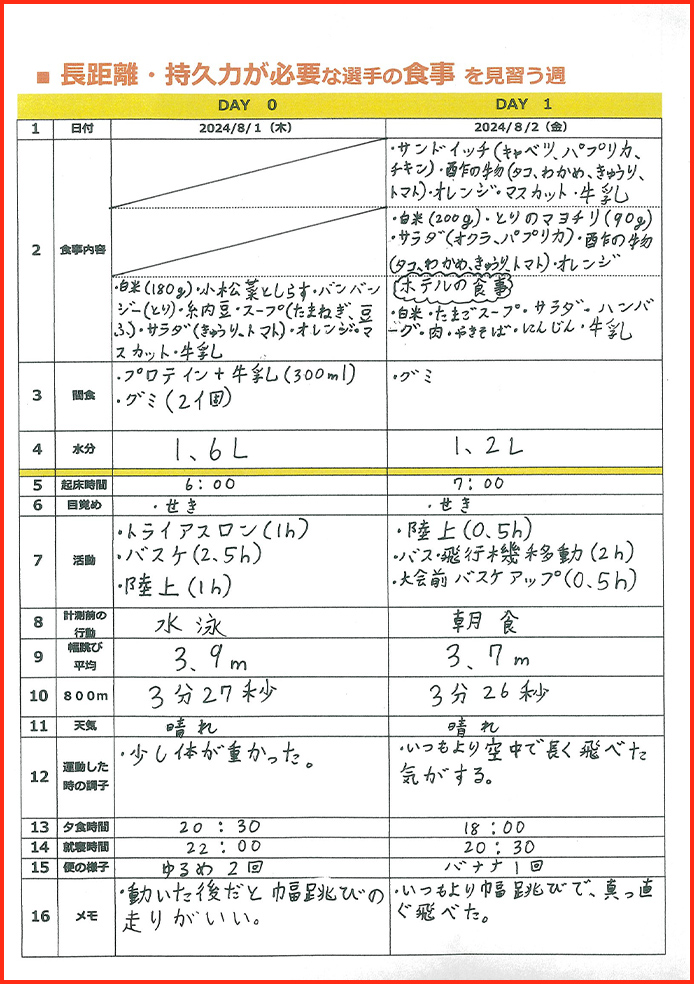 ■ 長距離・持久力が必要な選手の食事 を見習う週
DAY 0
DAY 1
1 日付 2024/8/1（木） 2024/8/2（金）
2 食事内容
・サンドイッチ(キャベツ、パプリカ、
チキン)・酢の物(タコ、わかめ、きゅうり、
トマト)・オレンジ・マスカット・牛乳
・白米(200g)・とりのマヨチリ(90g)
・サラダ(オクラ、パプリカ)・酢の物
(タコ、わかめ、きゅうり、トマト)・オレンジ
・白米(180g)・小松菜としらす・バンバン
ジー(とり)・納豆・スープ(たまねぎ、豆
ふ)・サラダ(きゅうり、トマト)・オレンジ・マ
スカット・牛乳
ホテルの食事
・白米・たまごスープ・サラダ・ハンバ
ーグ・肉・やきそば・にんじん・牛乳
3 間食
・プロテイン+牛乳(300ml)
・グミ(2個)
・グミ
4 水分 1、6L 1、2L
5 起床時間 6:00 7:00
6 目覚め ・せき ・せき
7 活動
・トライアスロン(1h)
・バスケ(2.5h)
・陸上(1h)
・陸上(0.5h)
・バス・飛行機移動(2h)
・大会前バスケアップ(0.5h)
8 計測前の
行動
水泳
朝食
9 幅跳び
平均
3、9m
3、7m
10 800m 3分27秒 3分26秒
11 天気 晴れ 晴れ
12 運動した
時の調子
・少し体が重かった。
・いつもより空中で長く飛べた
気がする。
13 夕食時間 20:30 18:00
14 就寝時間 22:00 20:30
15 便の様子 ゆるめ2回 バナナ1回
16 メモ
・動いた後だと幅跳びの
走りがいい。
・いつもより幅跳びで、真っ直
ぐ飛べた。